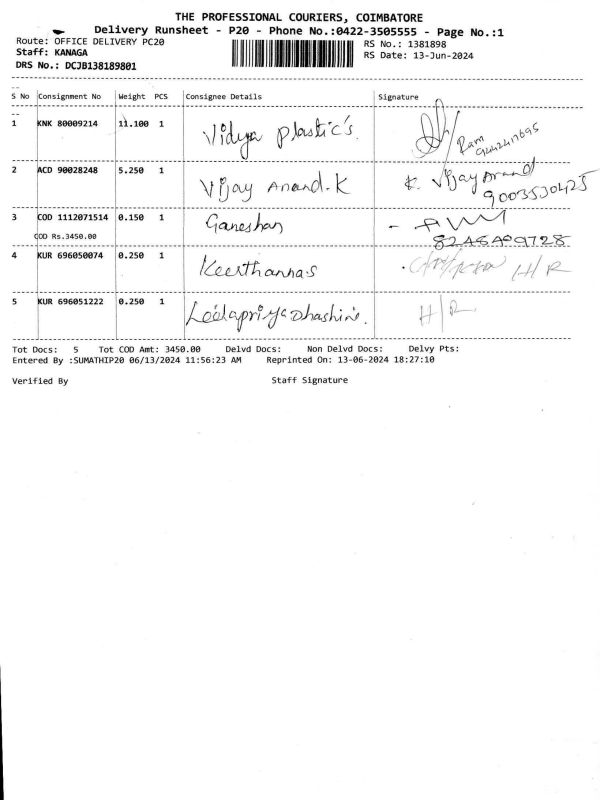 THE PROFESSIONAL COURIERS, COIMBATORE
Delivery Runsheet - P20 - Phone No.:0422-3505555 - Page No.:1
Route: OFFICE DELIVERY PC20
RS No.: 1381898
Staff: KANAGA
RS Date: 13-Jun-2024
DRS No.: DCJB138189801
S No Consignment No Weight PCS Consignee Details Signature
1 KNK 80009214 11.100 1 Vidya Plastic's
Ram
2 ACD 90028248 5.250 1 Vijay Anand.K K. Vijay Anand
9003530425
3 COD 1112071514 0.150 1 Ganeshan
COD Rs.3450.00
4 KUR 696050074 0.250 1 Keerthannas H/R
5 KUR 696051222 0.250 1 Leelapriya Dhashini. H/R
Tot Docs: 5 Tot COD Amt: 3450.00 Delvd Docs: Non Delvd Docs: Delvy Pts:
Entered By :SUMATHIP20 06/13/2024 11:56:23 AM Reprinted On: 13-06-2024 18:27:10
Verified By Staff Signature